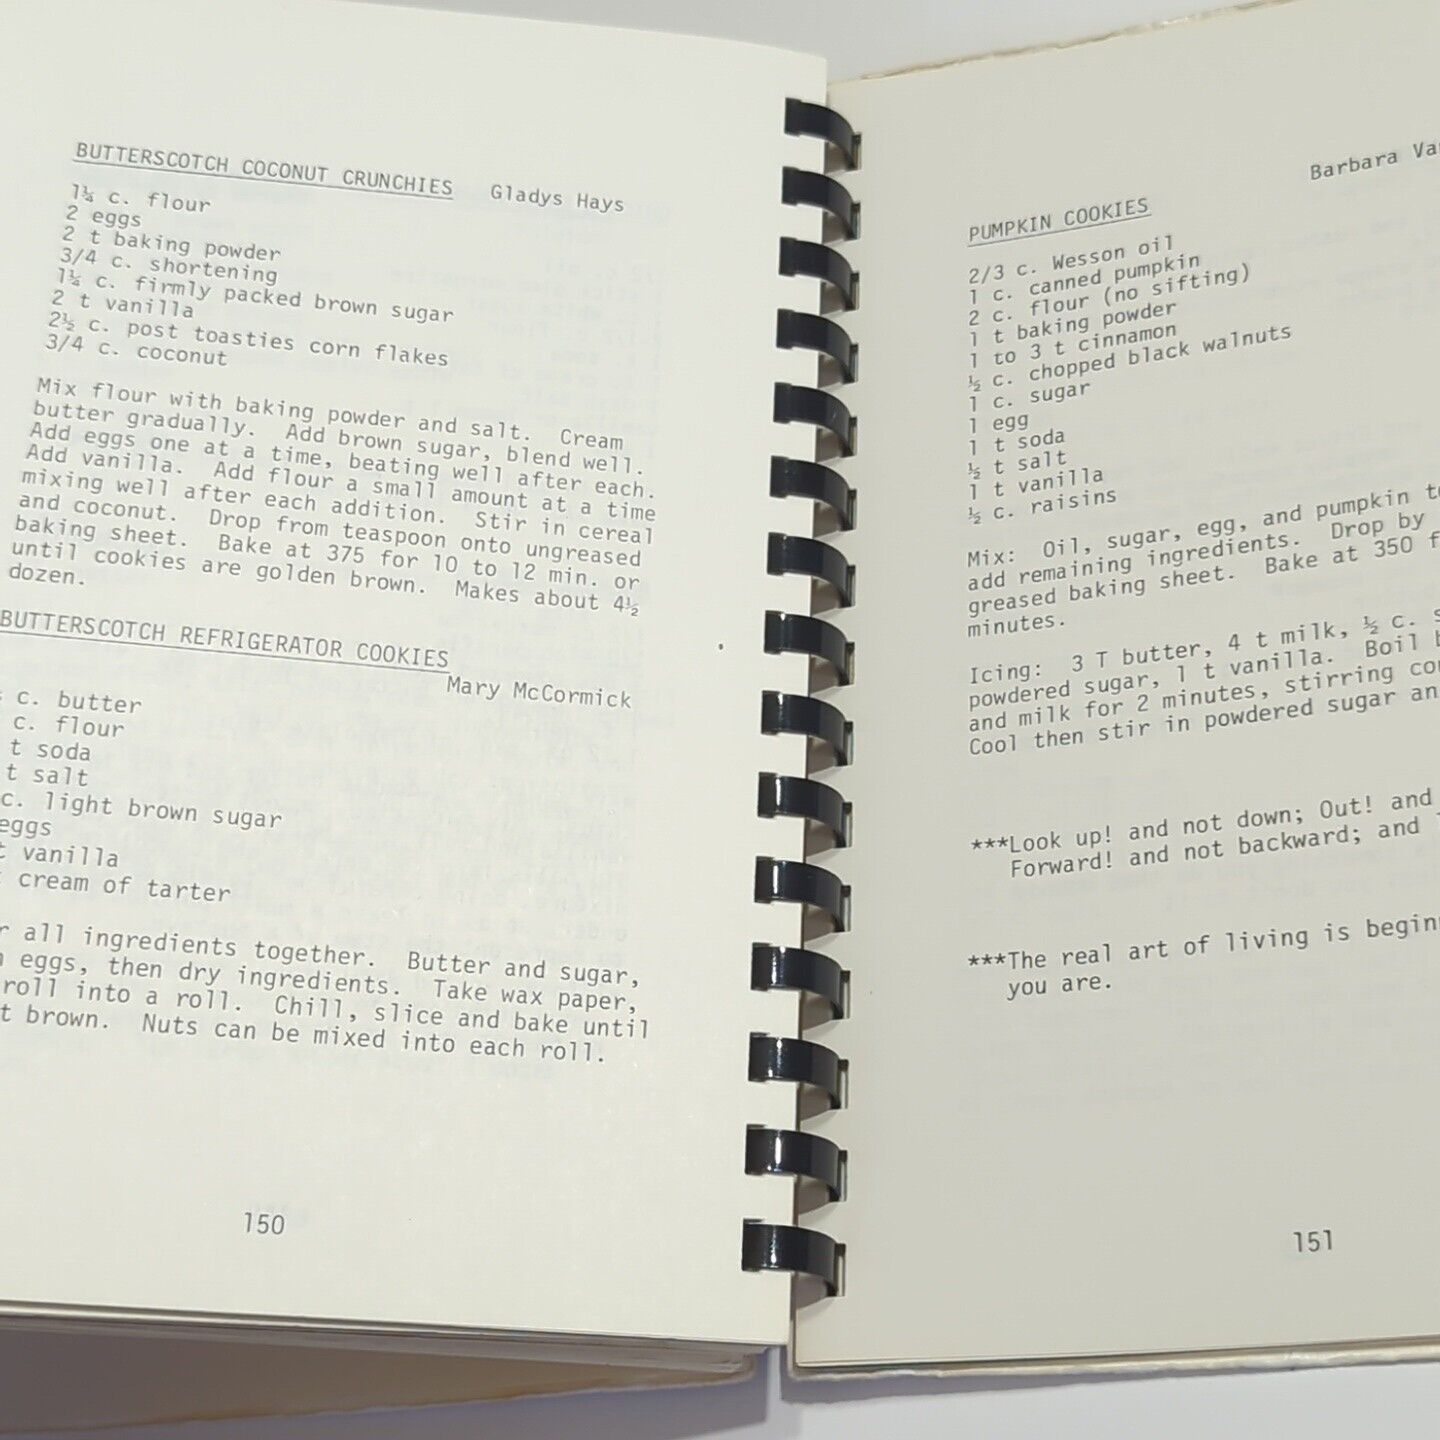 BUTTERSCOTCH COCONUT CRUNCHIES Gladys Hays
1¼ c. flour
2 eggs
2 t baking powder
3/4 c. shortening
1¼ c. firmly packed brown sugar
2 t vanilla
2½ c. post toasties corn flakes
3/4 c. coconut
Mix flour with baking powder and salt. Cream
butter gradually. Add brown sugar, blend well.
Add eggs one at a time, beating well after each.
Add vanilla. Add flour a small amount at a time
mixing well after each addition. Stir in cereal
and coconut. Drop from teaspoon onto ungreased
baking sheet. Bake at 375 for 10 to 12 min. or
until cookies are golden brown. Makes about 4½
dozen.
BUTTERSCOTCH REFRIGERATOR COOKIES
Mary McCormick
c. butter
c. flour
t soda
t salt
c. light brown sugar
eggs
t vanilla
cream of tarter
all ingredients together. Butter and sugar,
eggs, then dry ingredients. Take wax paper,
roll into a roll. Chill, slice and bake until
brown. Nuts can be mixed into each roll.
150
Barbara
PUMPKIN COOKIES
2/3 c. Wesson oil
1 c. canned pumpkin
2 c. flour (no sifting)
1 t baking powder
1 to 3 t cinnamon
½ c. chopped black walnuts
1 c. sugar
1 egg
1 t soda
½ t salt
1 t vanilla
½ c. raisins
Mix: Oil, sugar, egg, and pumpkin
add remaining ingredients. Drop by
greased baking sheet. Bake at 350
minutes.
Icing: 3 T butter, 4 t milk, ½ c.
powdered sugar, 1 t vanilla. Boil
and milk for 2 minutes, stirring
Cool then stir in powdered sugar
***Look up! and not down; Out! and
Forward! and not backward; and
***The real art of living is
you are.
151